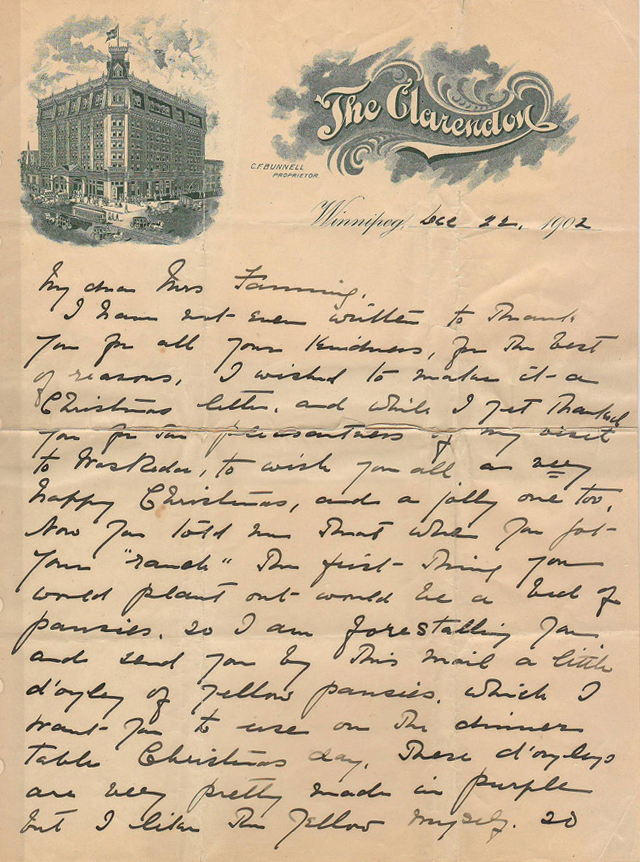 The Clarendon
C.F. BUNNELL
PROPRIETOR.
Winnipeg, Dec 22, 1902
My dear Mrs Fanning,
I have not even written to thank
you for all your kindness, for the best
of reasons, I wished to make it a
Christmas letter, and while I yet thanked
you for the pleasantness of my visit
to Waskada, to wish you all a very
happy Christmas, and a jolly one too,
Now you told me that when you got
your "ranch" the first thing you
would plant out would be a bed of
pansies. so I am forestalling you
and send you by this mail a little
d'oyley of yellow pansies. which I
want you to use on the dinner
table Christmas day. These d'oyleys
are very pretty made in purple
but I like the yellow myself. so